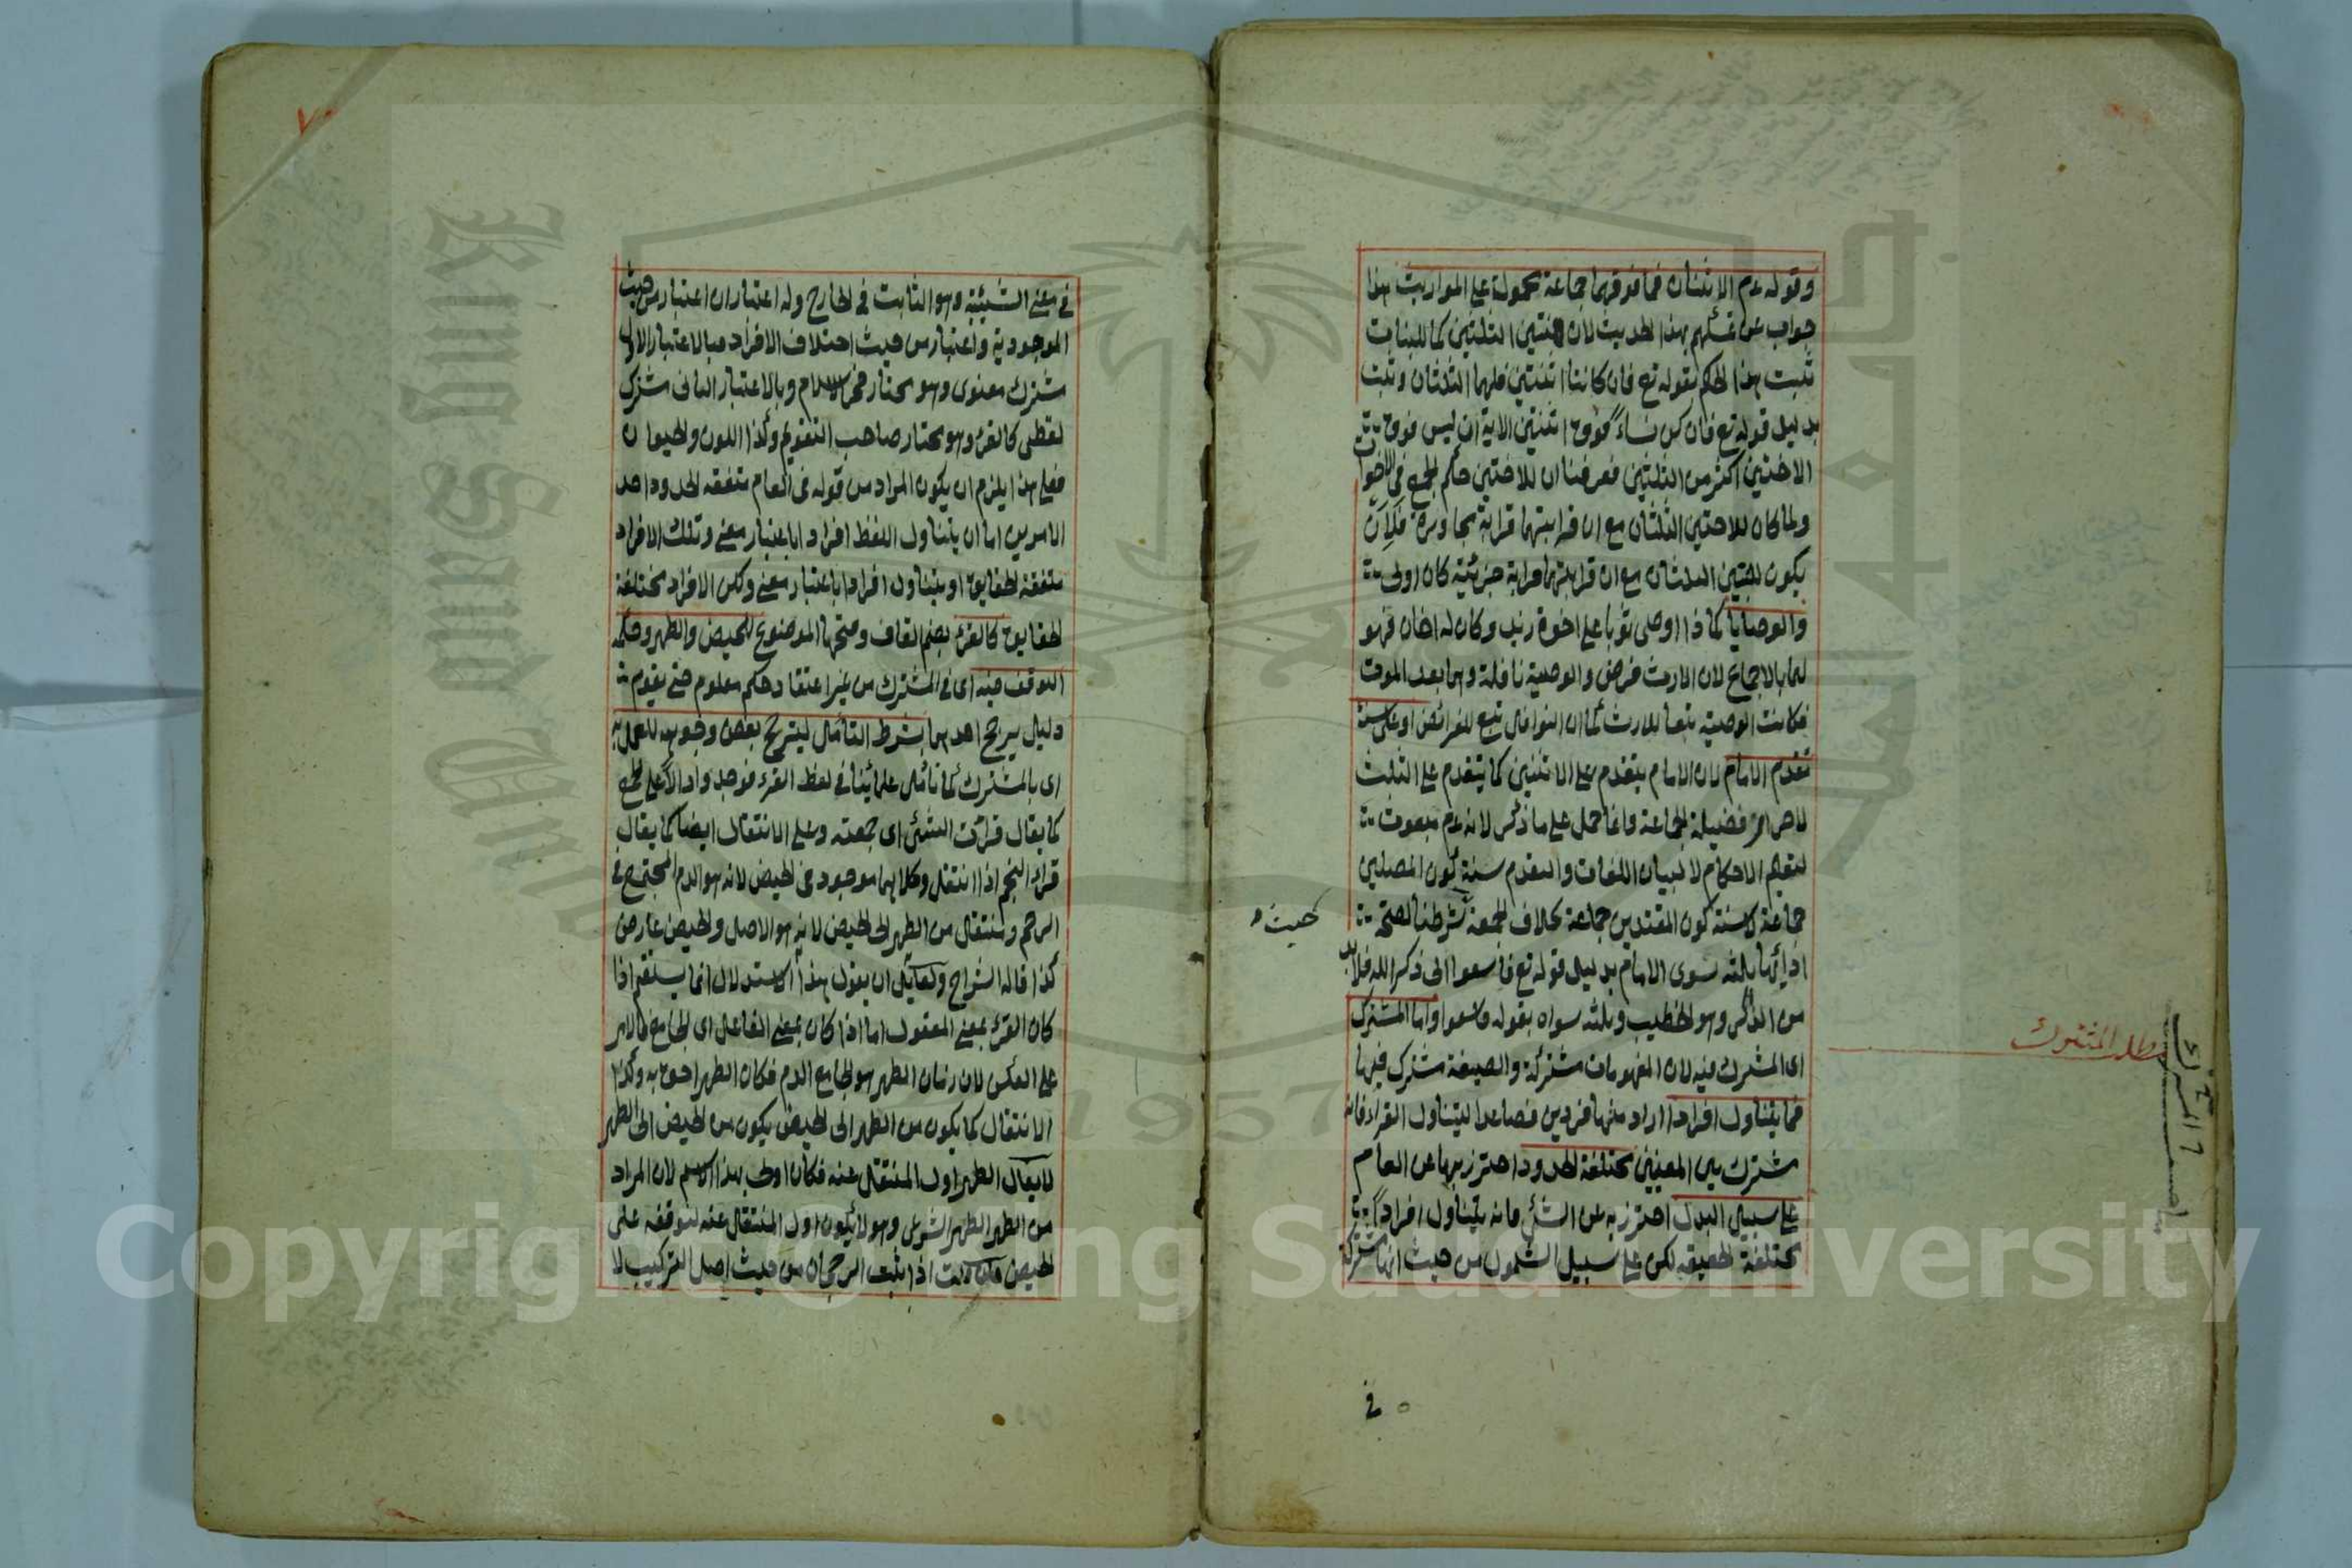 وقوله عم الاثنان فما فوقهما جماعة محمولة على المواريث هذا
جواب عن تمسكهم بهذا الحديث لان للاختين الثلثين كما للبنات
ثبت هذا الحكم بقوله تع فان كانتا اثنتين فلهما الثلثان وثبت
بدليل قوله تع فان كن نساء فوق اثنتين الاية ان ليس فوق
الاختين اكثر من الثلثين فعرفنا ان للاختين حكم الجمع في الاخوات
ولما كان للاختين الثلثان مع ان قرابتهما قرابة مجاورة فلان
يكون للبنتين الثلثان مع ان قرابتهما قرابة جزئية كان اولى
والوصايا كما اذا اوصى ثوبا على اخوة زيد وكان له اخان فهو
لهما بالاجماع لان الارث فرض والوصية نافلة وهما بعد الموت
فكانت الوصية تبعا للارث كما ان النوافل تبع للفرائض او على سنة
تقدم الامام لان الامام يتقدم على الاثنين كما يتقدم على الثلث
لاحراز فضيلة الجماعة وانما حمل على ما ذكر لانه عم مبعوث
لتعليم الاحكام لا لبيان اللغات والتقدم سنة كون المصلين
جماعة لا سنة كون المقتدين جماعة بخلاف الجمعة شرطنا لصحة
حيث
ادائها ثلثة سوى الامام بدليل قوله تع فاسعوا الى ذكر الله فلا بد
من الذاكر وهو الخطيب وثلثة سواه بقوله فاسعوا واما المشترك
مطلب المشترك
اى المشترك فيه لان المفهومات مشتركة والصيغة مشترك فيها
فما يتناول افرادا اراد منها فردين فصاعدا ليتناول القرء فانه
مشترك بين المعنيين مختلفة الحدود احترز بها عن العام
على سبيل البدل احترز به عن الشئ فانه يتناول افرادا
مختلفة الحقيقة لكن على سبيل الشمول من حيث انها مشتركة
في
٧٠
في معنى الشيئية وهو الثابت في الخارج وله اعتباران اعتبار من حيث
الموجودية واعتبار من حيث اختلاف الافراد فبالاعتبار الاول
مشترك معنوى وهو مختار فخر الاسلام وبالاعتبار الثانى مشترك
لفظى كالقرء وهو مختار صاحب التقويم وكذا اللون والحيوان
فعلى هذا يلزم ان يكون المراد من قوله في العام متفقة الحدود احد
الامرين اما ان يتناول اللفظ افرادا باعتبار معنى وتلك الافراد
متفقة الحقايق او يتناول افرادا باعتبار معنى ولكن الافراد مختلفة
الحقايق كالقرء بضم القاف وفتحها الموضوع للحيض والطهر وحكمه
التوقف فيه اى في المشترك من غير اعتقاد حكم معلوم حتى يقوم
دليل يرجح احدهما بشرط التأمل ليترجح بعض وجوهه للعمل به
اى بالمشترك كما تأمل علمائنا في لفظ القرء فوجدوا دالا على الجمع
كما يقال قرأت الشئ اى جمعته وعلى الانتقال ايضا كما يقال
قرأ النجم اذا انتقل وكلاهما موجود في الحيض لانه هو الدم المجتمع في
الرحم وينتقل من الطهر الى الحيض لانه هو الاصل والحيض عارض
كذا قاله الشراح ولقائل ان يقول هذا الاستدلال انما يستقيم اذا
كان القرء بمعنى المفعول اما اذا كان بمعنى الفاعل اى الجامع فالامر
على العكس لان زمان الطهر هو الجامع الدم فكان الطهر احق به وكذا
الانتقال كما يكون من الطهر الى الحيض يكون من الحيض الى الطهر
لا يقال الطهر اول المنتقل عنه فكان اولى بهذا الاسم لان المراد
من الطهر الطهر الشرعى وهو لا يكون اول المنتقل عنه لتوقفه على
الحيض اذا يثبت الرجحان من حيث اصل التركيب لا
Copyright © King Saud University
King Saud University
1957